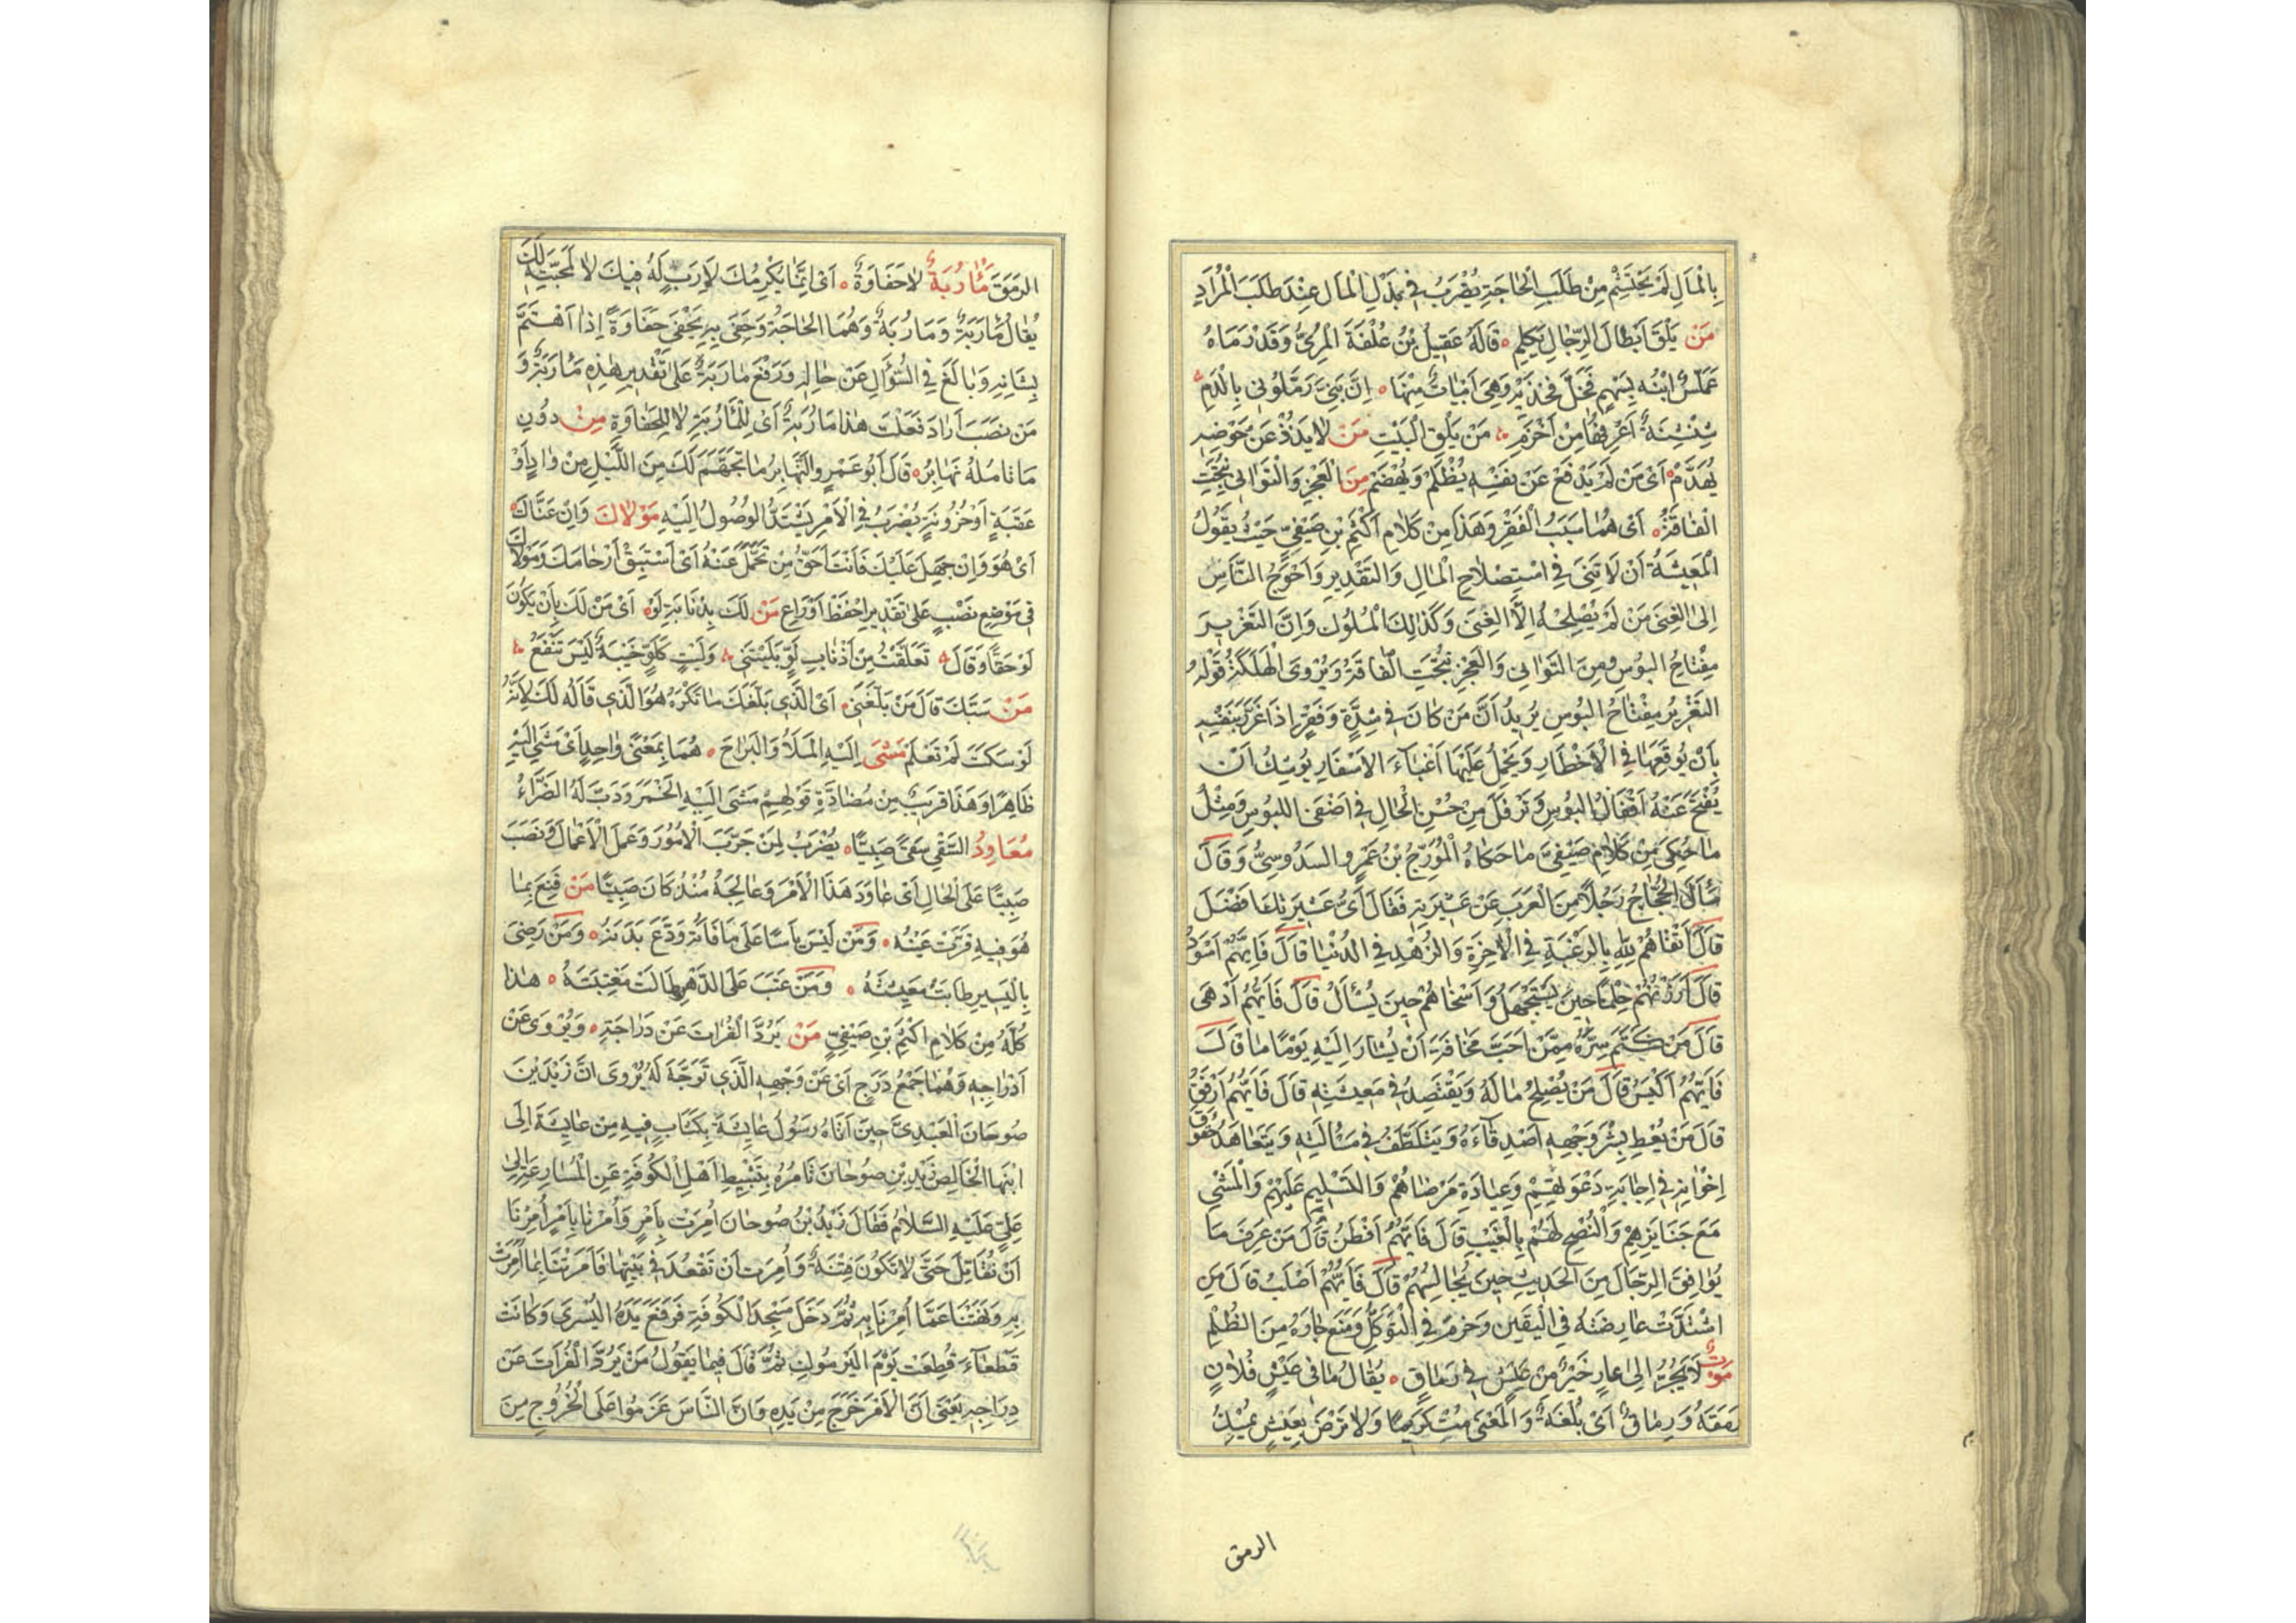 بِالْمَالِ لَمْ يَحْتَشِمْ مِنْ طَلَبِ الْحَاجَةِ يُضْرَبُ فِي بَذْلِ الْمَالِ عِنْدَ طَلَبِ الْمُرَادِ
مَنْ يَلْقَ أَبْطَالَ الرِّجَالِ يُكْلَمِ قَالَهُ عَقِيلُ بْنُ عُلْفَةَ الْمُرِّيُّ وَقَدْ رَمَاهُ
عَمَلَّسُ ابْنُهُ بِسَهْمٍ فَحَلَّ فَخْذَيْهِ وَهِيَ أَبْيَاتٌ مِنْهَا إِنَّ بَنِيَّ رَمَّلُونِي بِالدَّمِ
شِنْشِنَةٌ أَعْرِفُهَا مِنْ أَخْزَمِ مَنْ يَلْقَ الْبَيْتَ مَنْ لَا يَذُدْ عَنْ حَوْضِهِ
يُهَدَّمْ أَيْ مَنْ لَمْ يَدْفَعْ عَنْ نَفْسِهِ يُظْلَمْ وَيُهْضَمْ مِنَ الْعَجْزِ وَالتَّوَانِي نُتِجَتِ
الْفَاقَةُ أَيْ هُمَا سَبَبُ الْفَقْرِ وَهَذَا مِنْ كَلَامِ أَكْثَمِ بْنِ صَيْفِيٍّ حَيْثُ يَقُولُ
الْمَعِيشَةُ أَنْ لَا تَنِيَ فِي اسْتِصْلَاحِ الْمَالِ وَالتَّقْدِيرِ وَأَحْوَجُ النَّاسِ
إِلَى الْغِنَى مَنْ لَمْ يُصْلِحْهُ إِلَّا الْغِنَى وَكَذَلِكَ الْمُلُوكُ وَإِنَّ التَّغْرِيرَ
مِفْتَاحُ الْبُوسِ وَمِنَ التَّوَانِي وَالْعَجْزِ نُتِجَتِ الْفَاقَةُ وَيُرْوَى الْهَلَكَةُ قَوْلُهُ
التَّغْرِيرُ مِفْتَاحُ الْبُوسِ يُرِيدُ أَنَّ مَنْ كَانَ فِي شِدَّةٍ وَفَقْرٍ إِذَا غَرَّرَ بِنَفْسِهِ
بِأَنْ يُوقِعَهَا فِي الْأَخْطَارِ وَيَحْمِلُ عَلَيْهَا أَعْبَاءَ الْأَسْفَارِ يُوشِكُ أَنْ
يُفْتَحَ عَنْهُ أَقْفَالُ الْبُوسِ وَتَرْفُلَ مِنْ حُسْنِ الْحَالِ فِي أَضْفَى اللَّبُوسِ وَمِثْلُ
مَا حُكِيَ مِنْ كَلَامِ صَيْفِيٍّ مَا حَكَاهُ الْمُؤَرِّجُ بْنُ عَمْرٍو السَّدُوسِيُّ وَقَالَ
سَأَلَ الْحَجَّاجُ رَجُلًا مِنَ الْعَرَبِ عَنْ عَشِيرَتِهِ فَقَالَ أَيُّ عَشِيرَتِكَ أَفْضَلُ
قَالَ أَتْقَاهُمْ لِلَّهِ بِالرَّغْبَةِ فِي الْآخِرَةِ وَالزُّهْدِ فِي الدُّنْيَا قَالَ فَأَيُّهُمْ أَسْوَدُ
قَالَ أَرْزَنُهُمْ حِلْمًا حِينَ يُسْتَجْهَلُ وَأَسْخَاهُمْ حِينَ يُسْأَلُ قَالَ فَأَيُّهُمْ أَدْهَى
قَالَ مَنْ كَتَمَ سِرَّهُ مِمَّنْ أَحَبَّ مَخَافَةَ أَنْ يُشَارَ إِلَيْهِ يَوْمًا مَا قَالَ
فَأَيُّهُمْ أَكْيَسُ قَالَ مَنْ يُصْلِحُ مَالَهُ وَيَقْتَصِدُ فِي مَعِيشَتِهِ قَالَ فَأَيُّهُمْ أَرْفَقُ
قَالَ مَنْ يُعْطِ بِشْرَ وَجْهِهِ أَصْدِقَاءَهُ وَيَتَلَطَّفُ فِي مَسْأَلَتِهِ وَيَتَعَاهَدُ حُقُوقَ
إِخْوَانِهِ فِي إِجَابَةِ دَعَوَاتِهِمْ وَعِيَادَةِ مَرْضَاهُمْ وَالتَّسْلِيمِ عَلَيْهِمْ وَالْمَشْيِ
مَعَ جَنَايِزِهِمْ وَالنُّصْحِ لَهُمْ بِالْغَيْبِ قَالَ فَأَيُّهُمْ أَفْطَنُ قَالَ مَنْ عَرَفَ مَا
يُوَافِقُ الرِّجَالَ مِنَ الْحَدِيثِ حِينَ يُجَالِسُهُمْ قَالَ فَأَيُّهُمْ أَصْلَبُ قَالَ مَنِ
اشْتَدَّتْ عَارِضَتُهُ فِي الْيَقِينِ وَحَزَمَ فِي التَّوَكُّلِ وَمَنَعَ جَارَهُ مِنَ الظُّلْمِ
مَوْتٌ لَا يَجُرُّ إِلَى عَارٍ خَيْرٌ مِنْ عَيْشٍ فِي رَمَاقٍ يُقَالُ مَا فِي عَيْشِ فُلَانٍ
رَمَقَةٌ وَرِمَاقٌ أَيْ بُلْغَةٌ وَالْمَعْنَى مُتْ كَرِيمًا وَلَا تَرْضَ بِعَيْشٍ يُمْسِكُ
الرمق
الرَّمَقَ مَأْرُبَةٌ لَا حَفَاوَةٌ أَيْ إِنَّمَا يُكْرِمُكَ لِأَرَبٍ لَهُ فِيكَ لَا لِمَحَبَّتِهِ لَكَ
يُقَالُ مَأْرَبَةٌ وَمَأْرُبَةٌ وَهُمَا الْحَاجَةُ وَحَفِيَ بِهِ يَحْفَى حَفَاوَةً إِذَا اهْتَمَّ
بِشَانِهِ وَبَالَغَ فِي السُّؤَالِ عَنْ حَالِهِ وَرَفْعُ مَأْرَبَةٍ عَلَى تَقْدِيرِ هَذِهِ مَأْرَبَةٌ وَ
مَنْ نَصَبَ أَرَادَ فَعَلْتَ هَذَا مَأْرُبَةً أَيْ لِلْمَأْرُبَةِ لَا لِلْحَفَاوَةِ مِنْ دُونِ
مَا تَأْمُلُهُ نَهَابِرُ قَالَ أَبُو عَمْرٍو النَّهَابِرُ مَا تَجَهَّمَ لَكَ مِنَ اللَّيْلِ مِنْ وَادٍ أَوْ
عَقَبَةٍ أَوْ حُزُونَةٍ يُضْرَبُ فِي الْأَمْرِ يَشْتَدُّ الْوُصُولُ إِلَيْهِ مَوْلَاكَ وَإِنْ عَنَّاكَ
أَيْ هُوَ وَإِنْ جَهِلَ عَلَيْكَ فَأَنْتَ أَحَقُّ مَنْ تَحَمَّلَ عَنْهُ أَيْ اسْتَبْقِ أَرْحَامَكَ وَمَوْلَاكَ
فِي مَوْضِعِ نَصْبٍ عَلَى تَقْدِيرِ احْفَظْ أَوْ رَاعِ مَنْ لَكَ بِذُنَابَةِ لَوْ أَيْ مَنْ لَكَ بِأَنْ يَكُونَ
لَوْ حَقًّا وَقَالَ تَعَلَّقْتُ مِنْ أَذْنَابِ لَوٍّ بِلَيْتَنِي وَلَيْتٍ كَلَوٍّ خَيْبَةٌ لَيْسَ تَنْفَعُ
مَنْ سَبَّكَ قَالَ مَنْ بَلَّغَنِي أَيْ الَّذِي بَلَّغَكَ مَا تَكْرَهُ هُوَ الَّذِي قَالَهُ لَكَ لِأَنَّهُ
لَوْ سَكَتَ لَمْ تَعْلَمْ مَشَى إِلَيْهِ الْمَلَا وَالْبَرَاحَ هُمَا بِمَعْنًى وَاحِدٍ أَيْ مَشَى إِلَيْهِ
ظَاهِرًا وَهَذَا قَرِيبٌ مِنْ مُضَادَّةِ قَوْلِهِمْ مَشَى إِلَيْهِ الْخَمَرَ وَدَبَّ لَهُ الضَّرَاءَ
مُعَاوِدُ السَّقْيِ سُقِيَ صَبِيًّا يُضْرَبُ لِمَنْ جَرَّبَ الْأُمُورَ وَعَمِلَ الْأَعْمَالَ وَنَصَبَ
صَبِيًّا عَلَى الْحَالِ أَيْ عَاوَدَ هَذَا الْأَمْرَ وَعَالَجَهُ مُنْذُ كَانَ صَبِيًّا مَنْ قَنِعَ بِمَا
هُوَ فِيهِ قَرَّتْ عَيْنُهُ وَمَنْ لَيْسَ يَاسَا عَلَى مَا فَاتَهُ وَدَّعَ بَدَنَهُ وَمَنْ رَضِيَ
بِالْيَسِيرِ طَابَتْ مَعِيشَتُهُ وَمَنْ عَتَبَ عَلَى الدَّهْرِ طَالَتْ مَعْتَبَتُهُ هَذَا
كُلُّهُ مِنْ كَلَامِ أَكْثَمِ بْنِ صَيْفِيٍّ مَنْ يَرُدَّ الْفُرَاتَ عَنْ دَرَاجَتِهِ وَيُرْوَى عَنْ
أَدْرَاجِهِ وَهُمَا جَمْعُ دَرَجٍ أَيْ عَنْ وَجْهِهِ الَّذِي تَوَجَّهَ لَهُ يُرْوَى أَنَّ زَيْدَ بْنَ
صُوحَانَ الْعَبْدِيَّ حِينَ أَتَاهُ رَسُولُ عَايِشَةَ بِكِتَابٍ فِيهِ مِنْ عَايِشَةَ إِلَى
ابْنِهَا الْخَالِصِ زَيْدِ بْنِ صُوحَانَ تَأْمُرُهُ بِتَثْبِيطِ أَهْلِ الْكُوفَةِ عَنِ الْمُسَارَعَةِ إِلَى
عَلِيٍّ عَلَيْهِ السَّلَامُ فَقَالَ زَيْدُ بْنُ صُوحَانَ أُمِرَتْ بِأَمْرٍ وَأُمِرْنَا بِأَمْرٍ أُمِرْنَا
أَنْ نُقَاتِلَ حَتَّى لَا تَكُونَ فِتْنَةٌ وَأُمِرَتْ أَنْ تَقْعُدَ فِي بَيْتِهَا فَأَمَرَتْنَا بِمَا أُمِرَتْ
بِهِ وَنَهَتْنَا عَمَّا أُمِرْنَا بِهِ ثُمَّ دَخَلَ مَسْجِدَ الْكُوفَةِ فَرَفَعَ يَدَهُ الْيُسْرَى وَكَانَتْ
قَطْعَاءَ قُطِعَتْ يَوْمَ الْيَرْمُوكِ ثُمَّ قَالَ فِيمَا يَقُولُ مَنْ يَرُدُّ الْفُرَاتَ عَنْ
دِرَاجِهِ يَعْنِي أَنَّ الْأَمْرَ خَرَجَ مِنْ يَدِهِ وَأَنَّ النَّاسَ عَزَمُوا عَلَى الْخُرُوجِ مِنَ